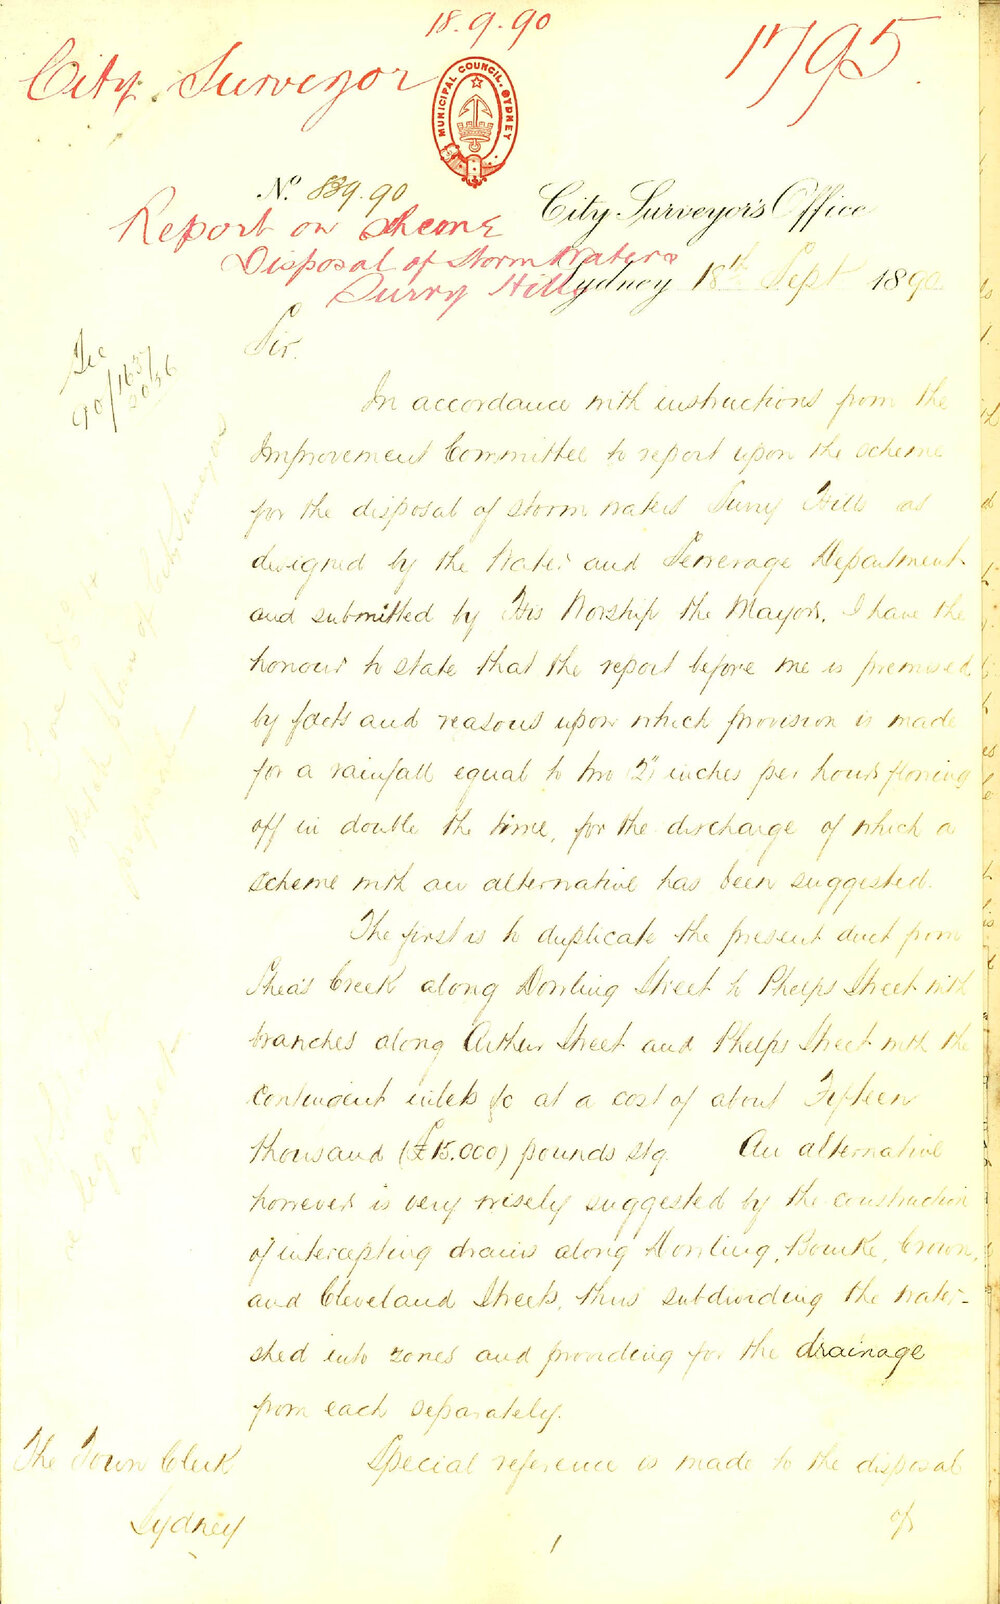 18.9.90
1795
City Surveyor
MUNICIPAL COUNCIL. SYDNEY
No. 839.90
City Surveyor's Office
Report on Scheme
Disposal of Storm Waters
Surry Hills
Sydney 18th Sept 1890
Sir.
See
90/1637
2036
In accordance with instructions from the
Improvement Committee to report upon the scheme
for the disposal of storm waters Surry Hills as
designed by the Water and Sewerage Department
and submitted by His Worship the Mayor, I have the
honour to state that the report before me is premised
by facts and reasons upon which provision is made
for a rainfall equal to two (2") inches per hour flowing
off in double the time, for the discharge of which a
scheme with an alternative has been suggested.
The first is to duplicate the present duct from
Shea's Creek along Dowling Street to Phelps Street with
branches along Arthur Street and Phelps Street with the
contingent inlets &c at a cost of about Fifteen
thousand (£15.000) pounds stg. An alternative
however is very wisely suggested by the construction
of intercepting drains along Dowling, Bourke, Crown,
and Cleveland Streets, thus subdividing the water-
shed into zones and providing for the drainage
from each separately.
Special reference is made to the disposal
of
The Town Clerk
Sydney
1